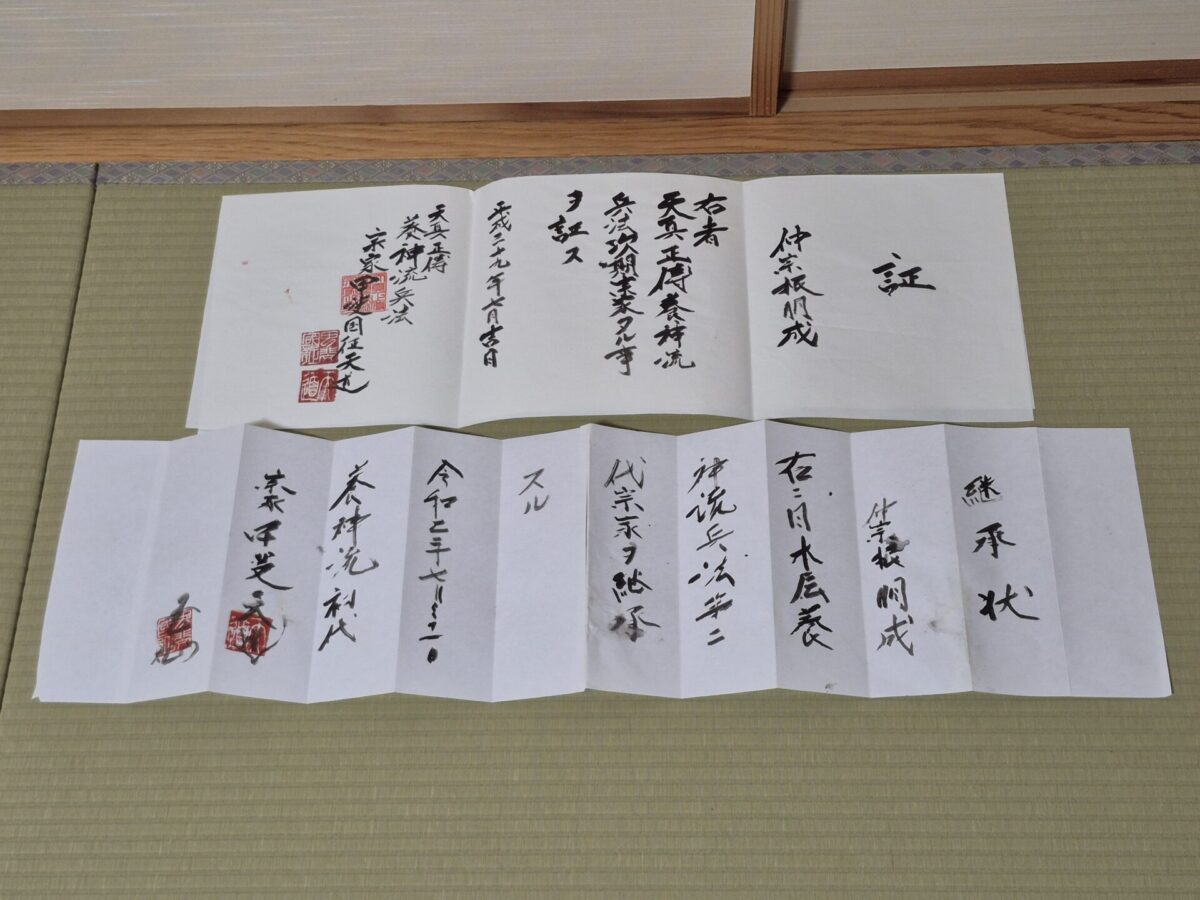 証
仲宗根明成
右者
天真正傳養神流
兵法次期宗家タル事
ヲ証ス
平成二十九年七月吉日
天真正傳
養神流兵法
宗家甲斐国征天道
継承状
仲宗根明成
右二目水辰養
神流兵法第二
代宗家ヲ継承
スル
令和三年七月
養神流初代
宗家甲斐天